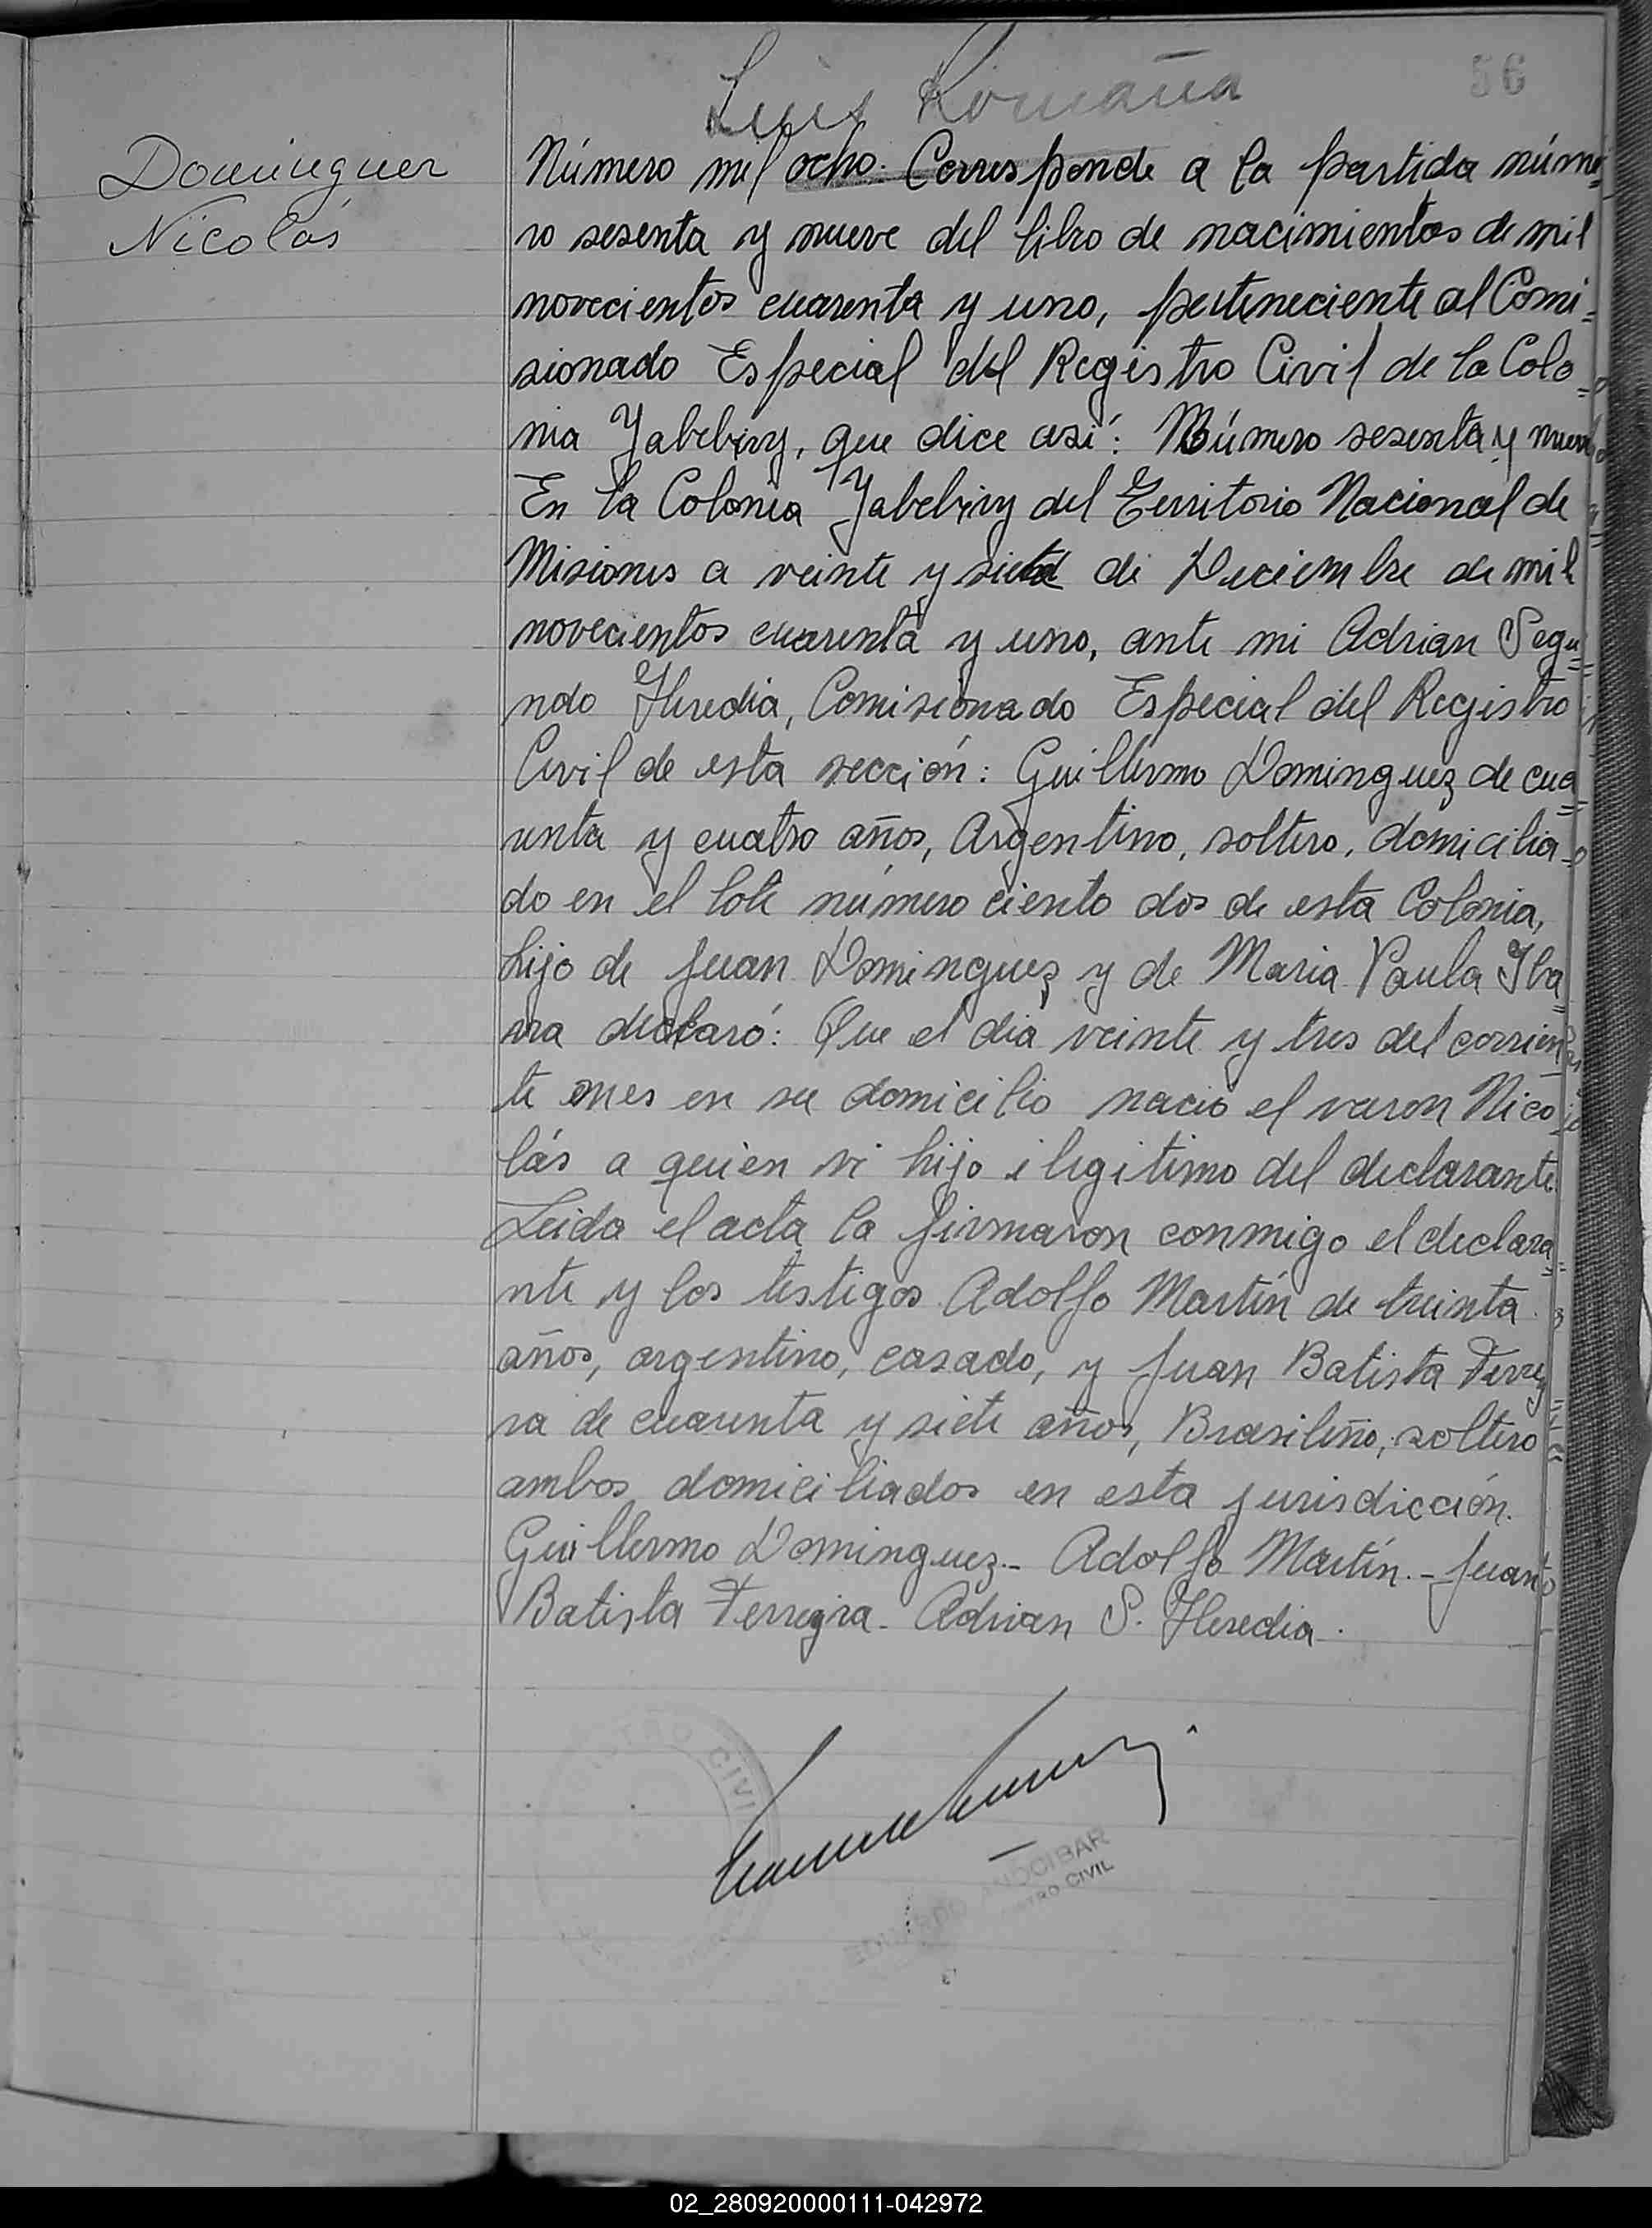 Luis Romaña
56
Dominguez
Nicolás
Número mil ocho. Corresponde a la partida núme=
ro sesenta y nueve del libro de nacimientos de mil
novecientos cuarenta y uno, perteneciente al Comi=
sionado Especial del Registro Civil de la Colo=
nia Yabebiry, que dice así: Número sesenta y nueve
En la Colonia Yabebiry del Territorio Nacional de
Misiones a veinte y siete de Diciembre de mil
novecientos cuarenta y uno, ante mi Adrian Segu=
ndo Heredia, Comisionado Especial del Registro
Civil de esta sección: Guillermo Dominguez de cua=
renta y cuatro años, Argentino, soltero, domicilia=
do en el lote número ciento dos de esta Colonia,
hijo de Juan Dominguez y de Maria Paula Iba=
rra declaró: Que el dia veinte y tres del corrien=
te mes en su domicilio nació el varon Nico=
lás a quien vi hijo ilegitimo del declarante.
Leida el acta la firmaron conmigo el declara=
nte y los testigos Adolfo Martín de treinta
años, argentino, casado, y Juan Batista Ferrey
ra de cuarenta y siete años, Brasileño, soltero
ambos domiciliados en esta jurisdicción.
Guillermo Dominguez.- Adolfo Martín.- Juan
Batista Ferreyra- Adrian S. Heredia.
REGISTRO CIVIL
EDUARDO ANOCIBAR
REGISTRO CIVIL
02_280920000111-042972